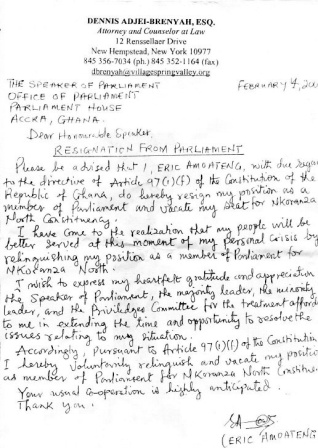 DENNIS ADJEI-BRENYAH, ESQ.
Attorney and Counselor at Law
12 Rensselaer Drive
New Hempstead, New York 10977
845 356-7034 (ph.) 845 352-1164 (fax)
dbrenyah@villagespringvalley.org
THE SPEAKER OF PARLIAMENT
FEBRUARY 4, 200
OFFICE OF PARLIAMENT
PARLIAMENT HOUSE
ACCRA, GHANA.
Dear Honourable Speaker,
RESIGNATION FROM PARLIAMENT
Please be advised that I, ERIC AMOATENG, with due regard
to the directive of Article 97(1)(f) of the Constitution of the
Republic of Ghana, do hereby resign my position as a
member of Parliament and vacate my seat for NKoranza
North Constituency.
I have come to the realization that my people will be
better served at this moment of my personal crisis by
relinquishing my position as a member of Parliament for
NKoranza North.
I wish to express my heartfelt gratitude and appreciation
the Speaker of Parliament, the majority leader, the minority
leader, and the Priviledges Committee for the treatment afford
to me in extending the time and opportunity to resolve the
issues relating to my situation.
Accordingly, pursuant to Article 97(1)(f) of the Constitution
I hereby voluntarily relinquish and vacate my position
as member of Parliament for NKoranza North Constituen
Your usual cooperation is highly anticipated.
Thank you.
(ERIC AMOATENG